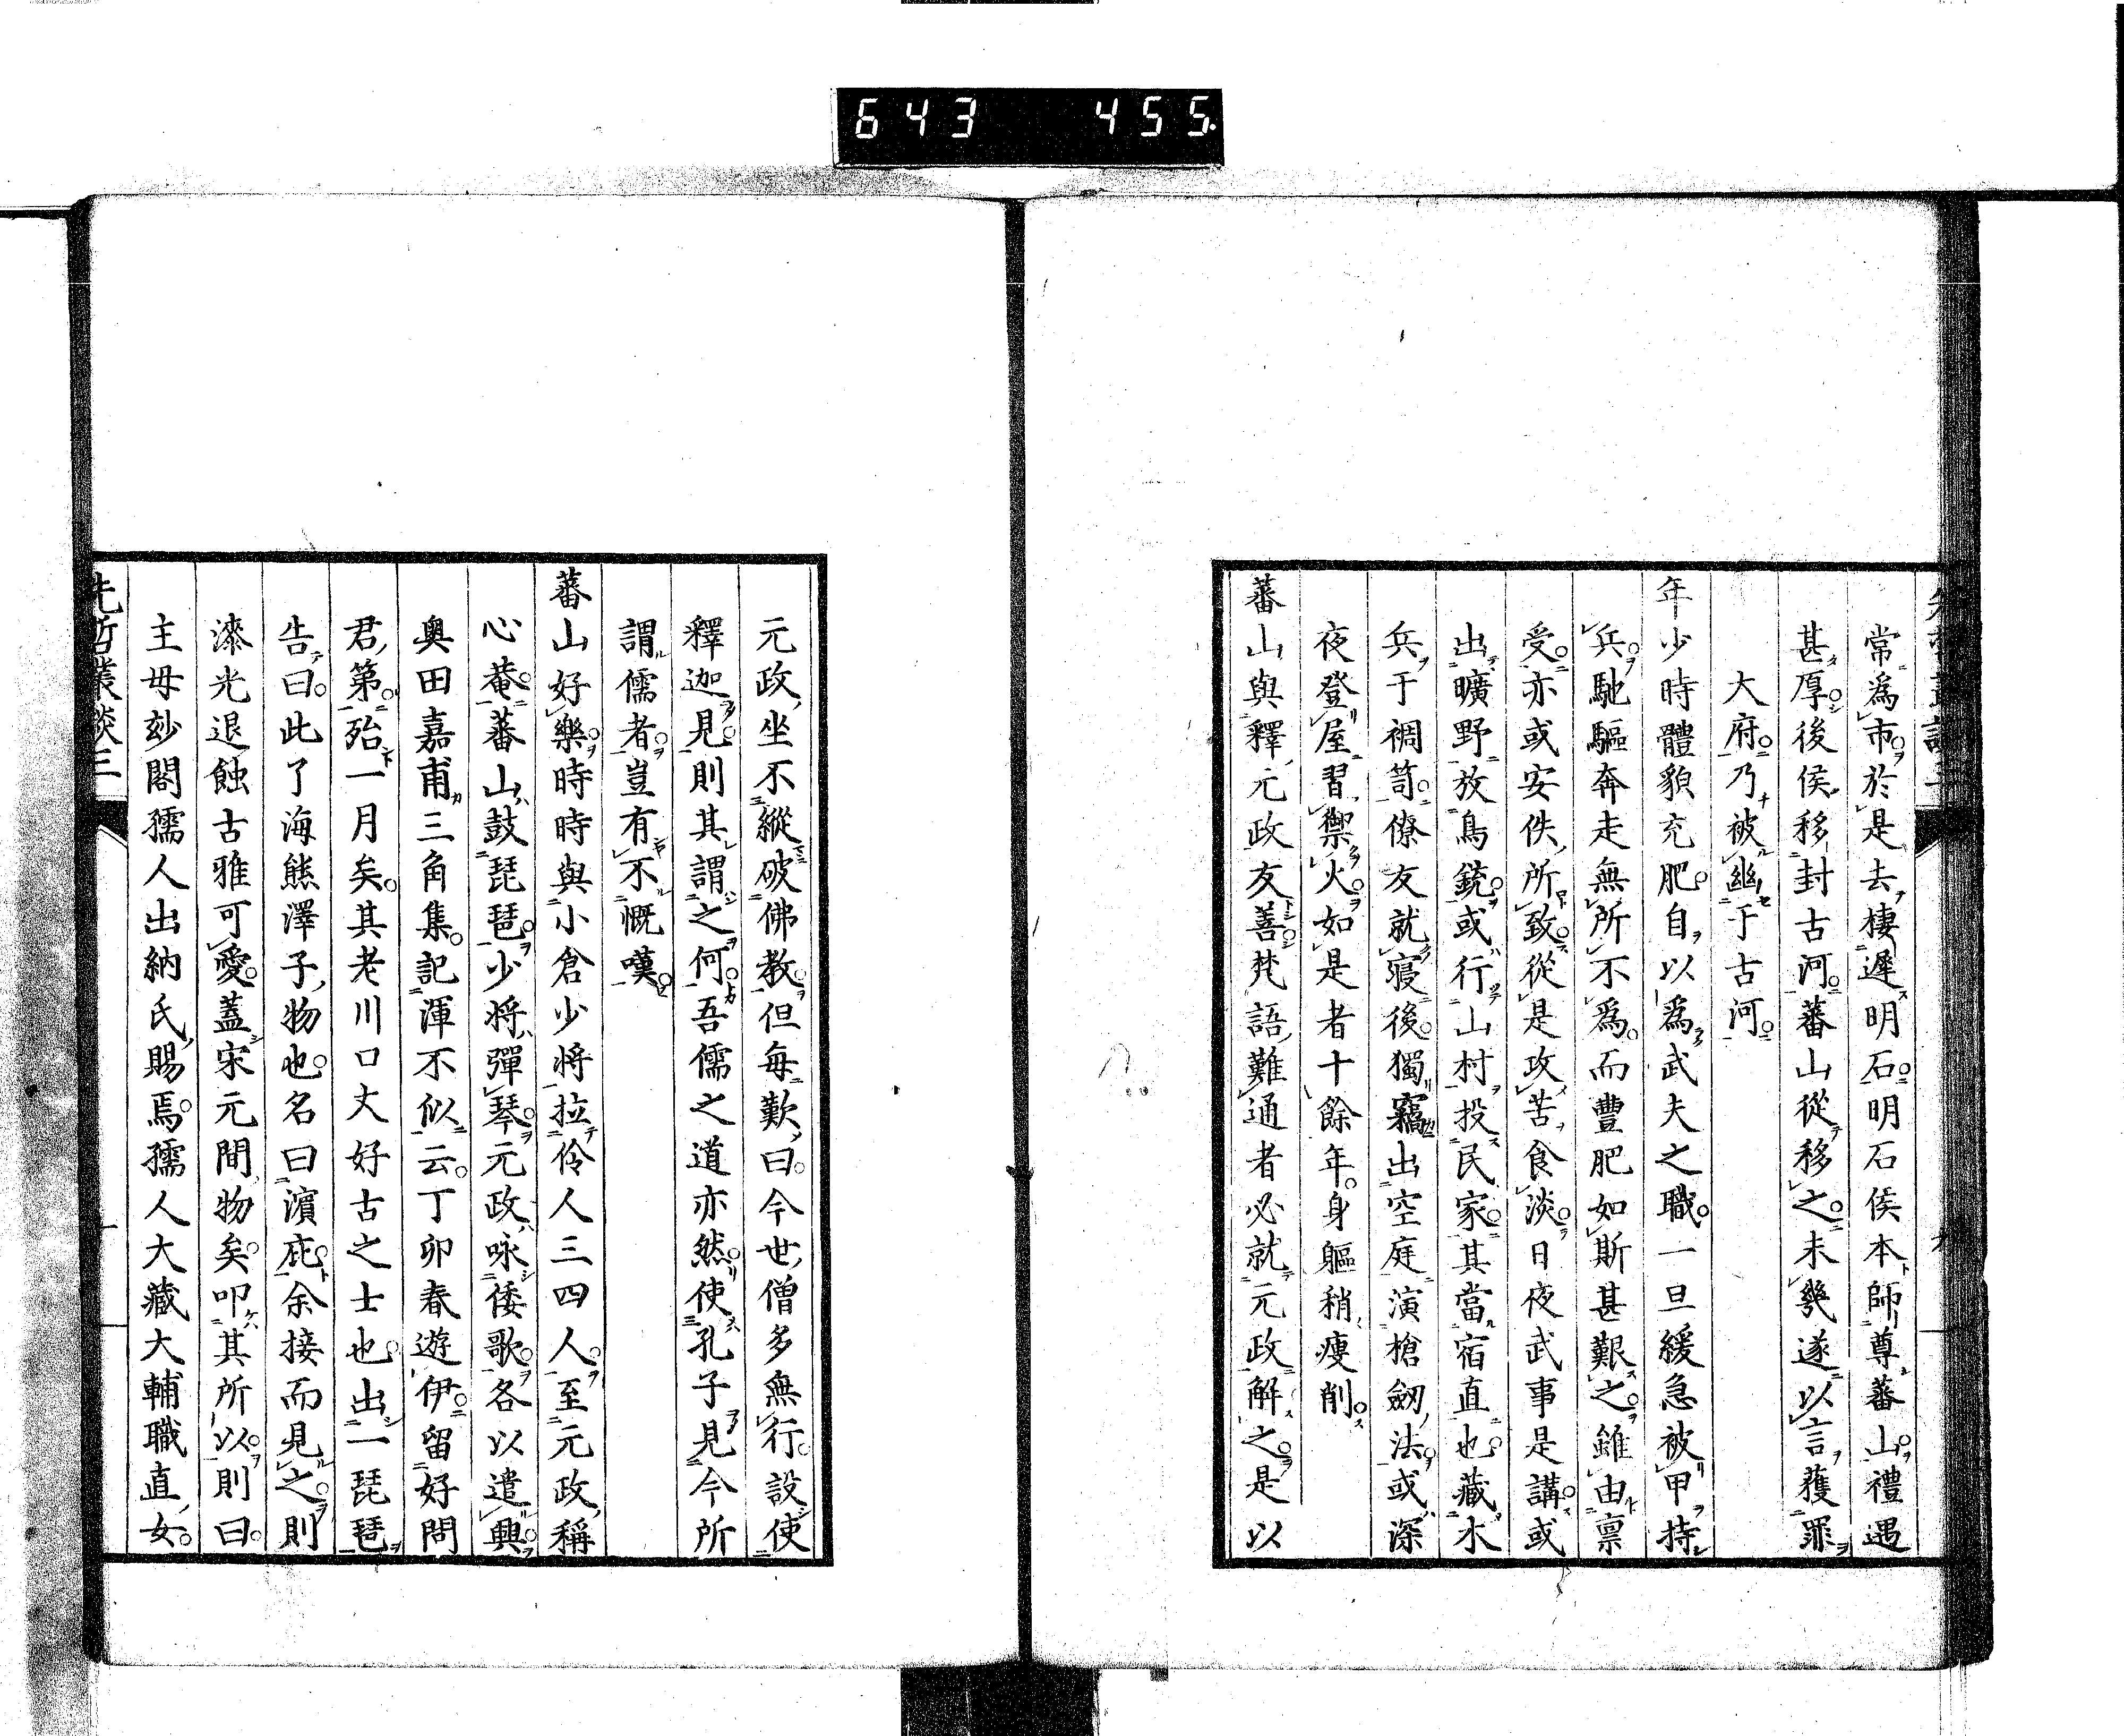 643 455
常爲市於是去棲遲明石明石侯本師尊蕃山禮遇
甚厚後侯移封古河蕃山從移之未幾遂以言獲罪
大府乃被幽于古河
年少時體貌充肥自以爲武夫之職一旦緩急被甲持
兵馳驅奔走無所不爲而豐肥如斯甚艱之雖由禀
受亦或安佚所致從是攻苦食淡日夜武事是講或
出曠野放鳥銃或行山村投民家其當宿直也藏木
兵于裯笥僚友就寢後獨竊出空庭演槍劒法或深
夜登屋習禦火如是者十餘年身軀稍瘦削
蕃山與釋元政友善梵語難通者必就元政解之是以
元政坐不縱破佛教但每歎曰今世僧多無行設使
釋迦見則其謂之何吾儒之道亦然使孔子見今所
謂儒者豈有不慨嘆
蕃山好樂時時與小倉少將拉伶人三四人至元政稱
心菴蕃山鼓琵琶少將彈琴元政咏倭歌各以遣興
奥田嘉甫三角集記渾不似云丁卯春遊伊留好問
君第殆一月矣其老川口丈好古之士也出一琵琶
告曰此了海熊澤子物也名曰濵庇余接而見之則
漆光退蝕古雅可愛蓋宋元間物矣叩其所以則曰
主母玅閣孺人出納氏賜焉孺人大藏大輔職直女
先哲叢談三